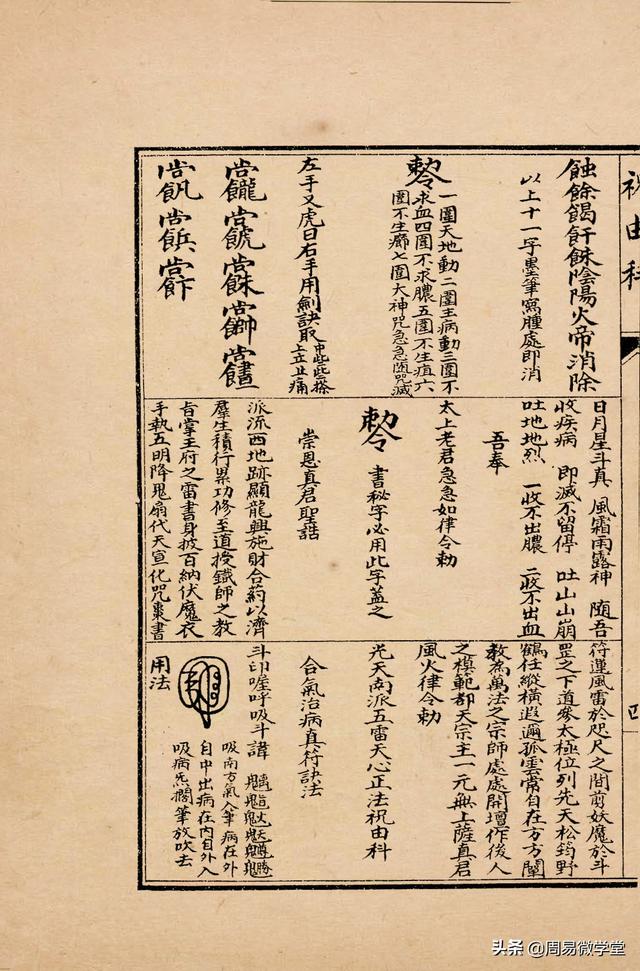 祝由科
四
陰陽火帝消除
以上十一字墨筆寫腫處即消
勅令
一圈天地動二圈主病動三圈不
求血四圈不求膿五圈不生疽六
圈不生癤七圈大神咒急急随咒滅
左手叉虎口右手用劍訣取
上立止痛
日月星斗真 風霜雨露神 随吾
收疾病 即滅不留停 吐山山崩
吐地地烈 一收不出膿 二收不出血
吾奉
太上老君急急如律令勅
勅令 書秘字必用此字蓋之
崇恩真君聖誥
派流西地跡顯龍興施財合葯以濟
羣生積行累功修至道授鐵師之教
旨掌王府之雷書身披百納伏魔衣
手執五明降鬼扇代天宣化咒棗書
符運風雷於咫尺之間剪妖魔於斗
罡之下道參太極位列先天松筠野
鶴任縱橫遐邇孤雲常自在方方闡
教為萬法之宗師處處開壇作後人
之模範都天宗主一元無上薩真君
風火律令勅
光天南派五雷天心正法祝由科
合氣治病真符訣法
斗印喔呼吸斗諱
吸南方氣入筆 病在外
自中出病在內自外入
吸病炁擱筆放吹去
用法
头条 @周易微学堂